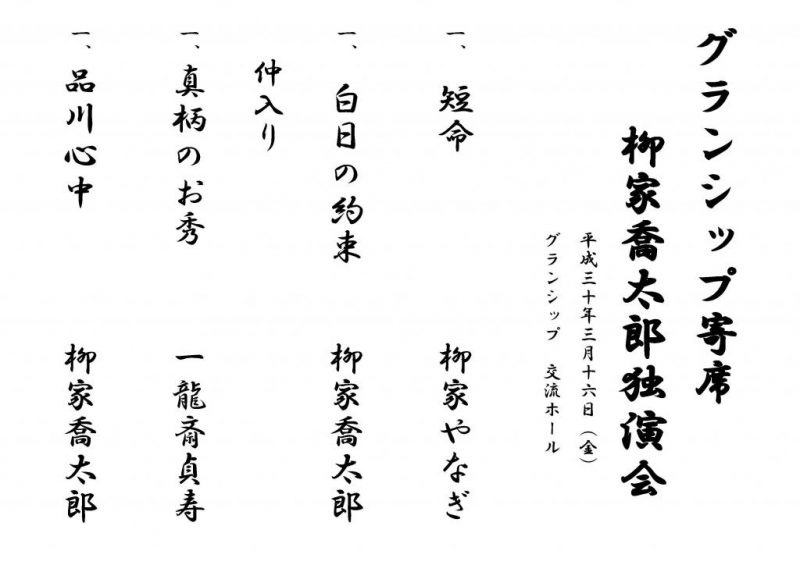 グランシップ寄席
柳家喬太郎独演会
平成三十年三月十六日（金）
グランシップ　交流ホール
一、短命　柳家やなぎ
一、白日の約束　柳家喬太郎
仲入り
一、真柄のお秀　一龍斎貞寿
一、品川心中　柳家喬太郎